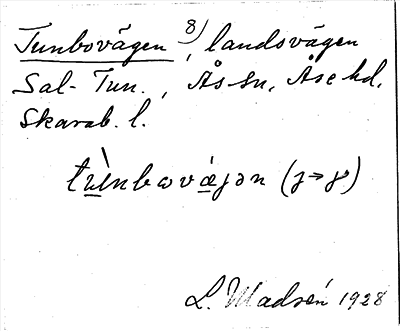 Tunbovägen 8), landsvägen
Sal-Tun., Ås sn, Åse hd,
Skarab. l.
L. Madsén 1928